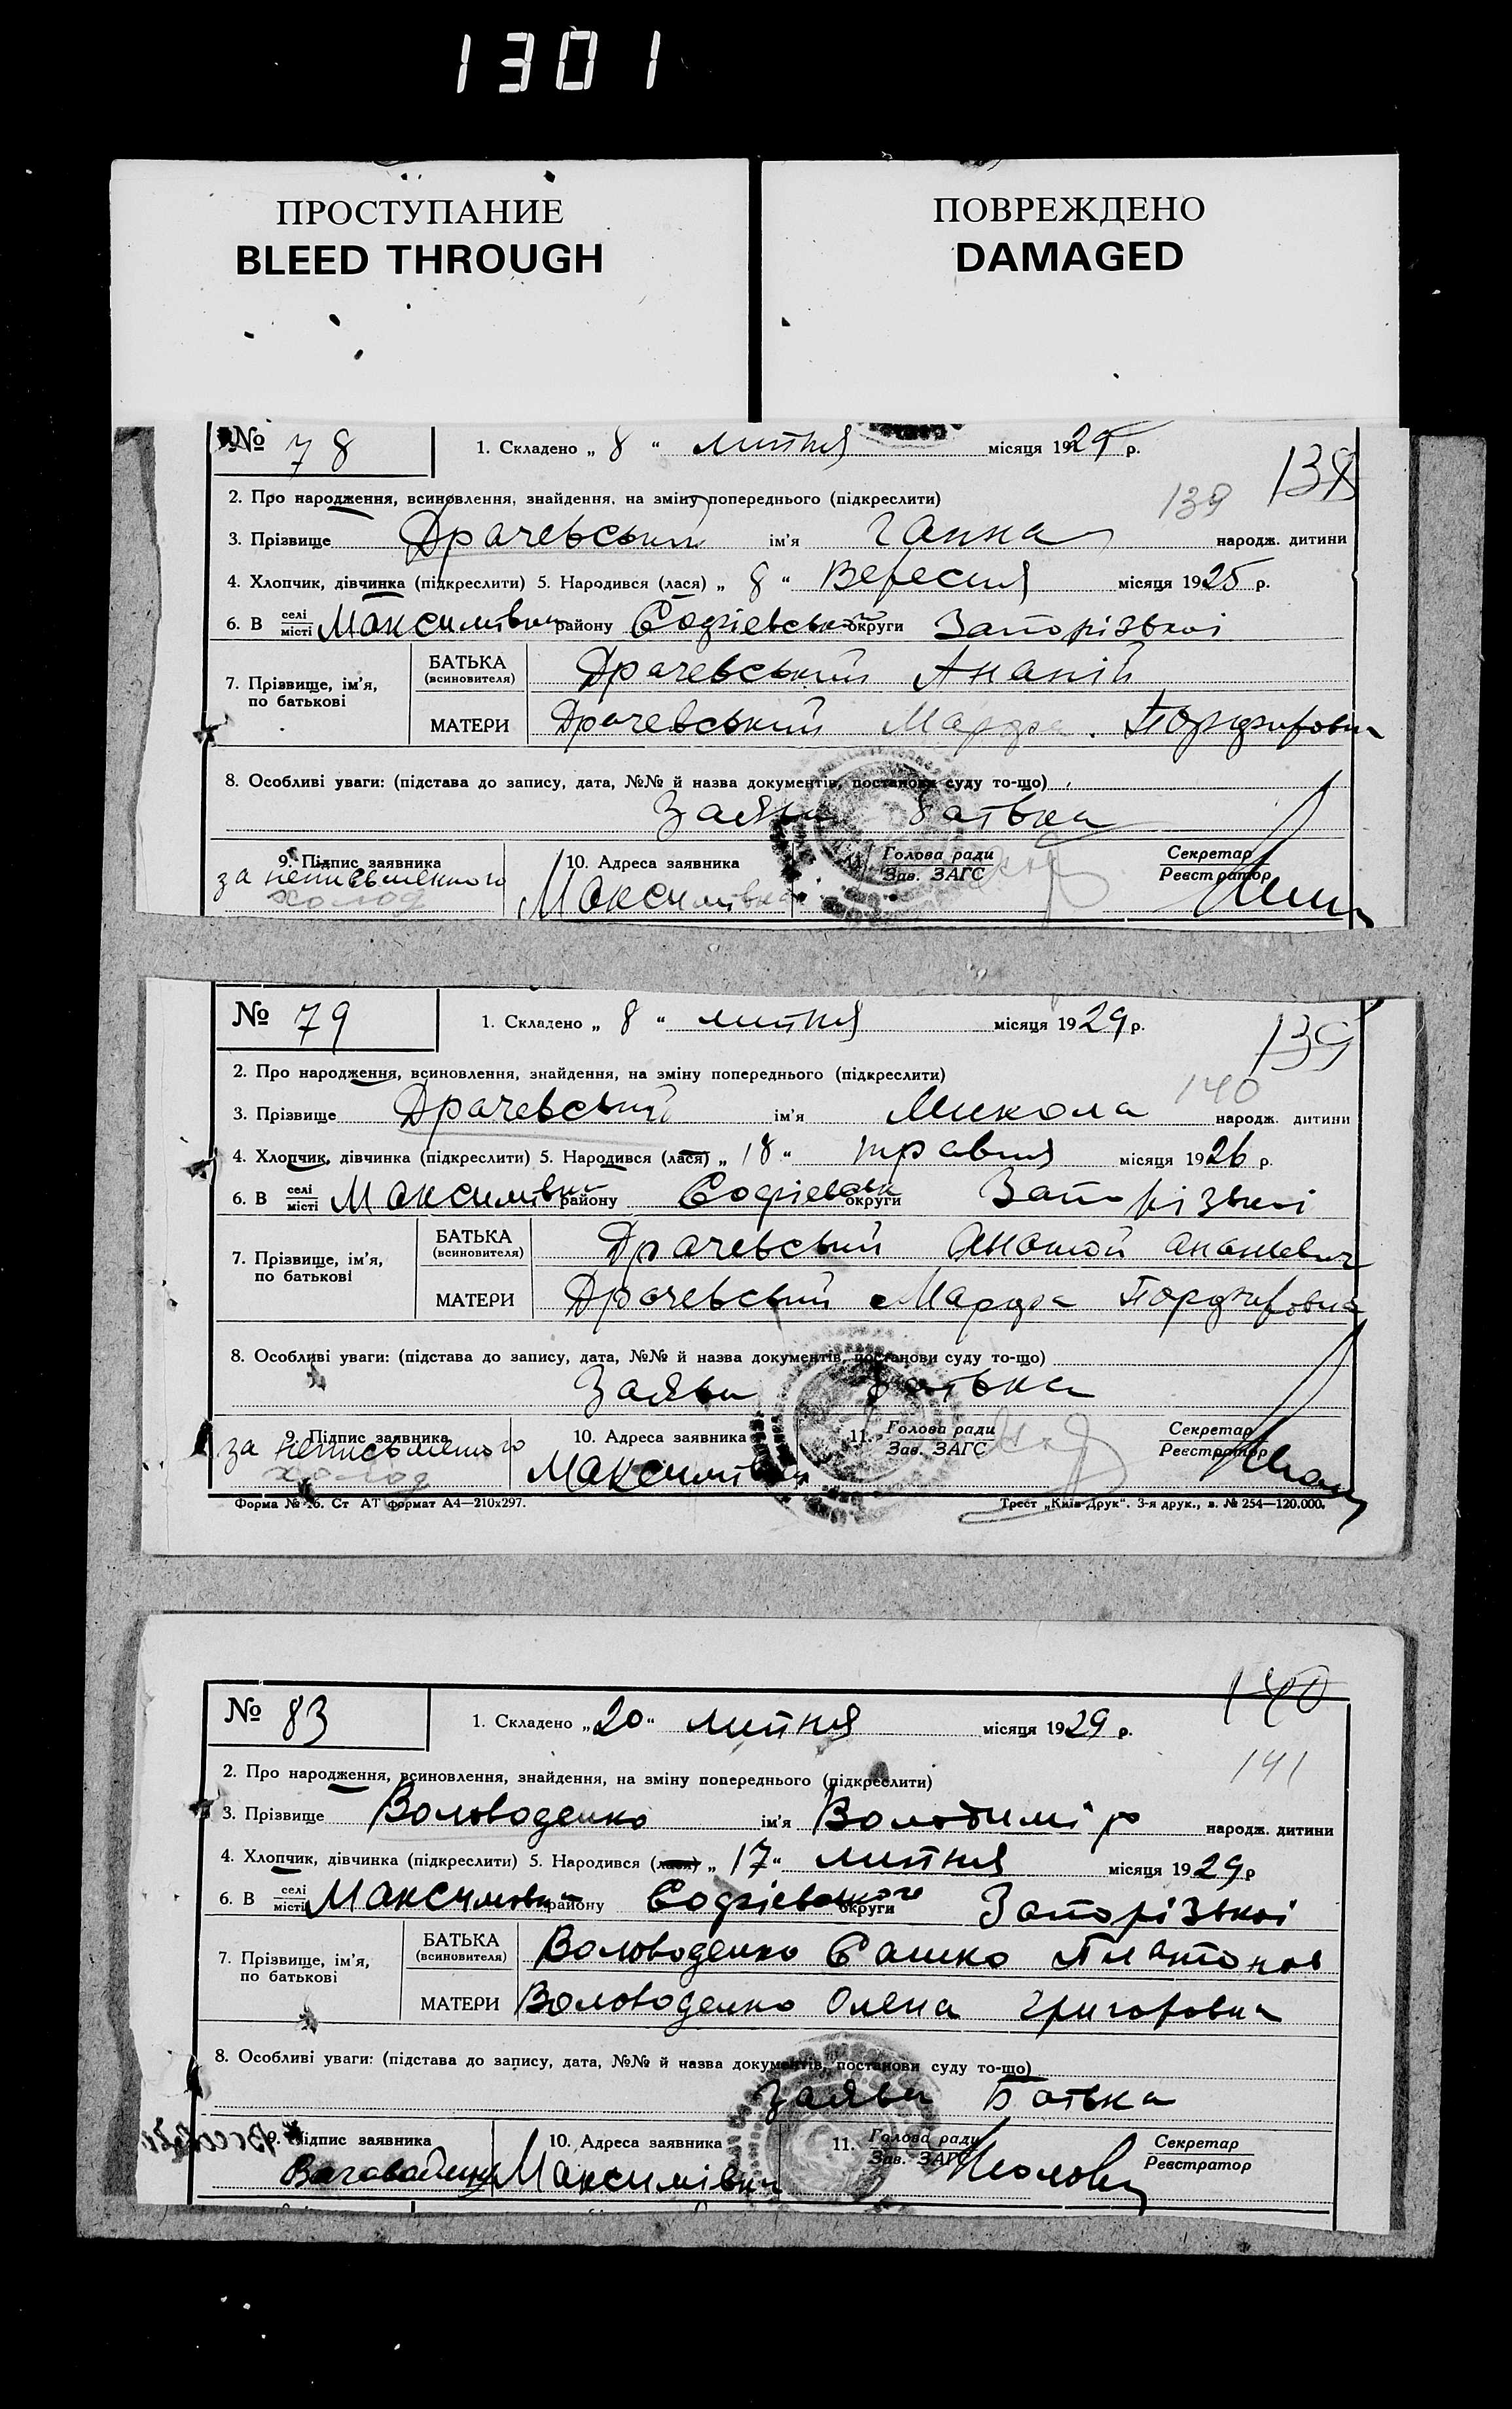 1301
ПРОСТУПАНИЕ
BLEED THROUGH
ПОВРЕЖДЕНО
DAMAGED
№ 78
1. Складено „ 8 “ липня місяця 1929 р.
138
2. Про народження, всиновлення, знайдення, на зміну попереднього (підкреслити)
139
3. Прізвище Драчевський ім'я Ганна народж. дитини
4. Хлопчик, дівчинка (підкреслити) 5. Народився (лася) „ 8 “ Вересня місяця 1925 р.
6. В селі місті Максимівки району Софіевського округи Запорізької
7. Прізвище, ім'я, по батькові
БАТЬКА (всиновителя) Драчевський Ананій
МАТЕРИ Драчевський Марфа Порфировна
8. Особливі уваги: (підстава до запису, дата, №№ й назва документів, постанови суду то-що)
Заява батька
9. Підпис заявника
за неписьменного
холод
10. Адреса заявника
Максимівка
11. Голова ради
Зав. ЗАГС
Секретар
Реєстратор
№ 79
1. Складено „ 8 “ липня місяця 1929 р.
139
2. Про народження, всиновлення, знайдення, на зміну попереднього (підкреслити)
140
3. Прізвище Драчевський ім'я Микола народж. дитини
4. Хлопчик, дівчинка (підкреслити) 5. Народився (лася) „ 18 “ травня місяця 1926 р.
6. В селі місті Максимівки району Софіевськ округи Запорізької
7. Прізвище, ім'я, по батькові
БАТЬКА (всиновителя) Драчевський Ананій Ананьевич
МАТЕРИ Драчевський Марфа Порфировна
8. Особливі уваги: (підстава до запису, дата, №№ й назва документів, постанови суду то-що)
Заява батька
9. Підпис заявника
за неписьменого
холод
10. Адреса заявника
Максимівка
11. Голова ради
Зав. ЗАГС
Секретар
Реєстратор
Форма № 16. Ст АТ формат А4—210х297.
Трест „Київ-Друк“. 3-я друк., в. № 254—120.000.
140
№ 83
1. Складено „ 20 “ липня місяця 1929 р.
141
2. Про народження, всиновлення, знайдення, на зміну попереднього (підкреслити)
3. Прізвище Воловоденко ім'я Володимір народж. дитини
4. Хлопчик, дівчинка (підкреслити) 5. Народився (лася) „ 17 “ липня місяця 1929 р
6. В селі місті Максимовки району Софіевського округи Запорізької
7. Прізвище, ім'я, по батькові
БАТЬКА (всиновителя) Воловоденко Сашко Платонов
МАТЕРИ Воловоденко Олена Григоровна
8. Особливі уваги: (підстава до запису, дата, №№ й назва документів, постанови суду то-що)
Заява Батька
9. Підпис заявника
10. Адреса заявника
Максимівка
11. Голова ради
Зав. ЗАГС
Секретар
Реєстратор